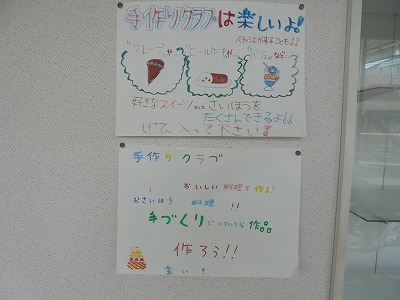 手作りクラブは楽しいよ!
パティシエが来ることも!?
"クレープ"や "ロールケーキ"や… "パフェ"など…
好きなスイーツ さいほうを
たくさんできるよ!!
ぜひ入って下さい!
手作りクラブ
おいしい料理を作る!
おさいほう 料理 !!
手づくりでいろいろな作品
作ろう!!
楽しい!